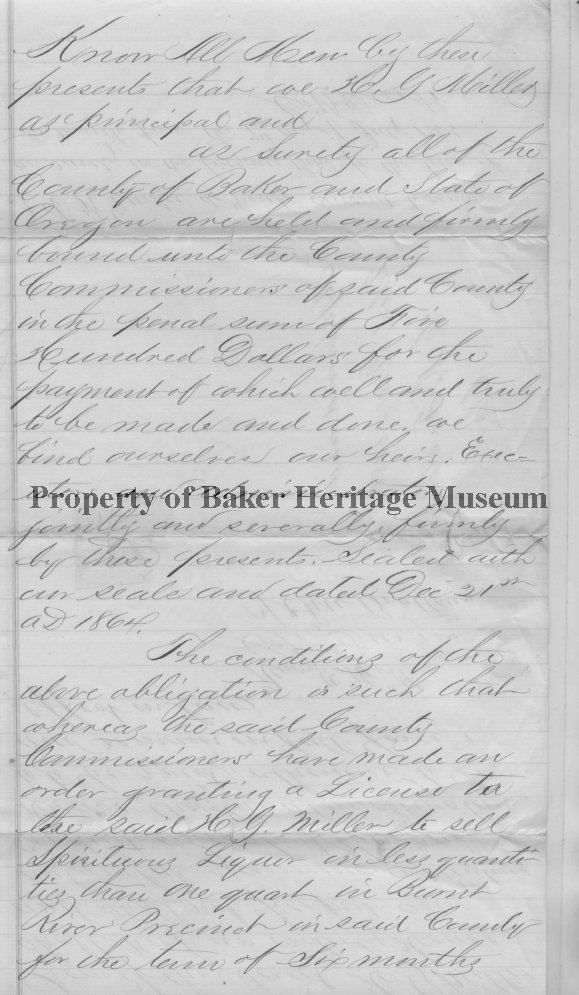 Know All Men by these
presents that we H. G Miller
as principal and
as surety all of the
County of Baker and State of
Oregon are held and firmly
bound unto the County
Commissioners of said County
in the penal sum of Five
Hundred Dollars for the
payment of which well and truly
to be made and done. we
bind ourselves our heirs. Exec-
Property of Baker Heritage Museum
jointly and severally, firmly
by these presents. Sealed with
our seals and dated Dec 21st
AD 1864.
The conditions of the
above obligation is such that
whereas the said County
Commissioners have made an
order granting a License to
the said H. G. Miller to sell
Spirituous Liquor in less quanti-
ties than one quart in Burnt
River Precinct in said County
for the term of Six months